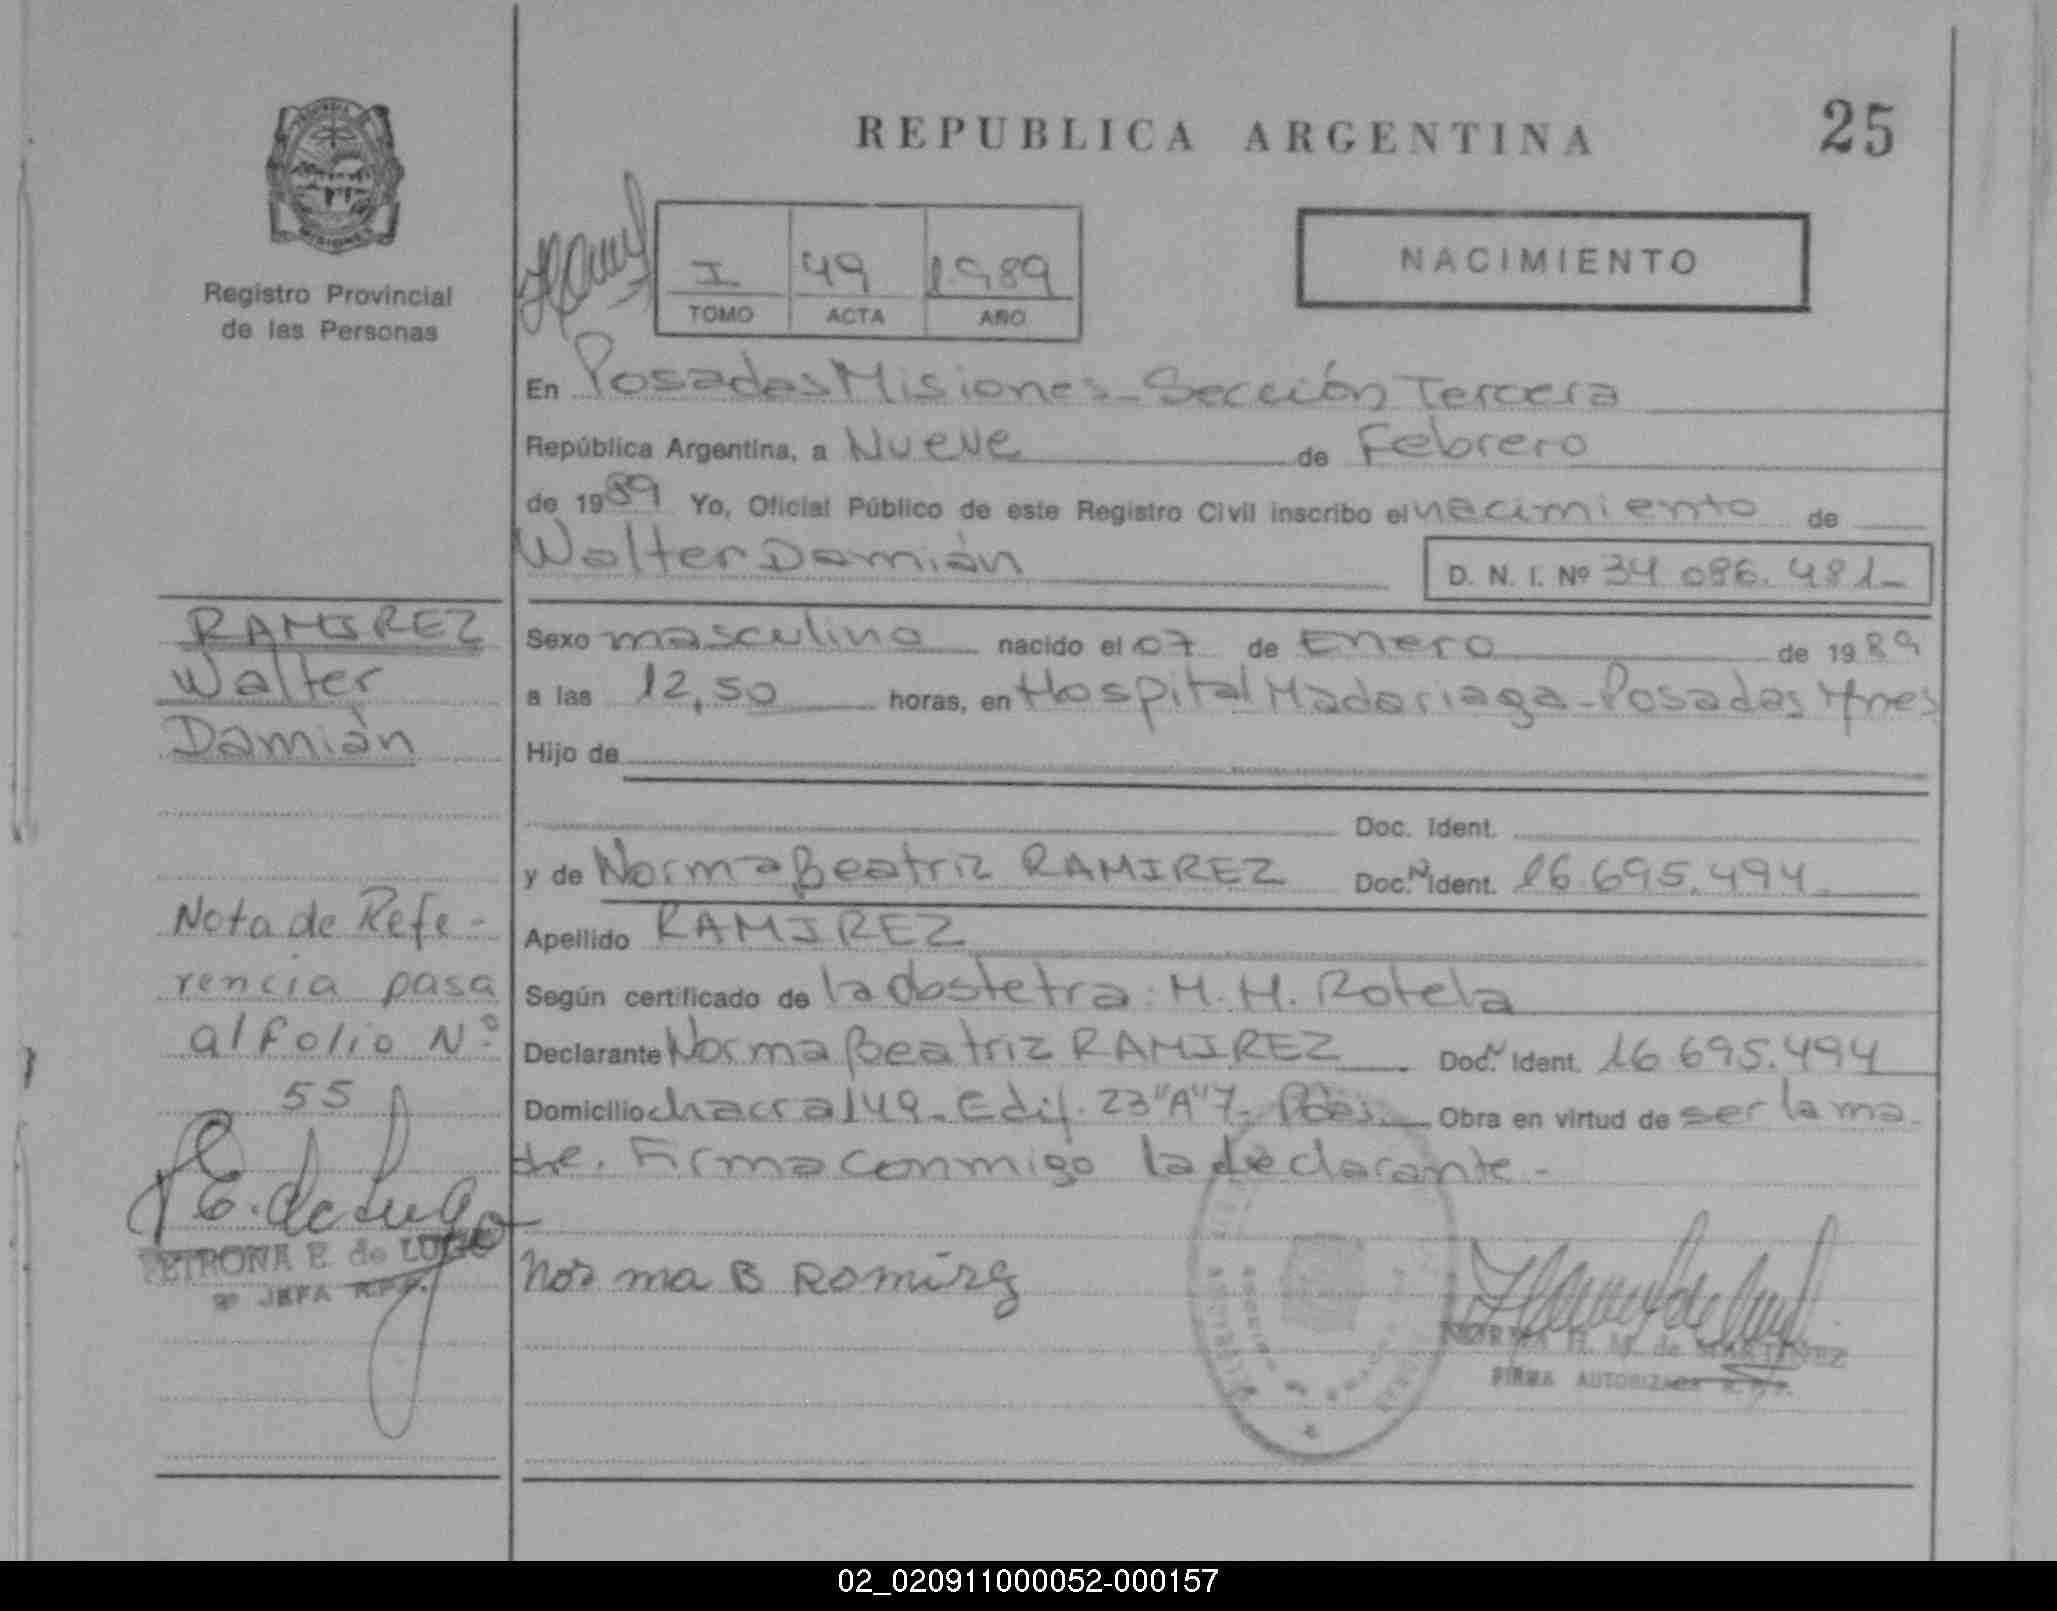 REPUBLICA ARGENTINA
25
Registro Provincial
de las Personas
I 49 1989
TOMO ACTA AÑO
NACIMIENTO
En Posadas Misiones - Sección Tercera
República Argentina, a Nueve de Febrero
de 1989 Yo, Oficial Público de este Registro Civil inscribo el nacimiento de
Walter Damián
D. N. I. Nº 34 086.481-
RAMIREZ
Walter
Damián
Sexo masculino nacido el 07 de Enero de 1989
a las 12,50 horas, en Hospital Madariaga - Posadas Mnes
Hijo de
Doc. Ident.
y de Norma Beatriz RAMIREZ Doc. N Ident. 16.695.494.
Apellido RAMIREZ
Según certificado de la obstetra: M. M. Rotela
Declarante Norma Beatriz RAMIREZ Doc. N Ident. 16 695.494
Domicilio chacra 149 - Edif. 23 "A" 7 - Pdas. Obra en virtud de ser la ma-
dre. Firma conmigo la declarante -
Nota de Refe-
rencia pasa
al folio Nº
55
E. de Lugo
PETRONA E. de LUGO
JEFA R.P.P.
Norma B Romirez
NORMA H. M. de MARTINEZ
FIRMA AUTORIZADA R. P. P.
02_020911000052-000157